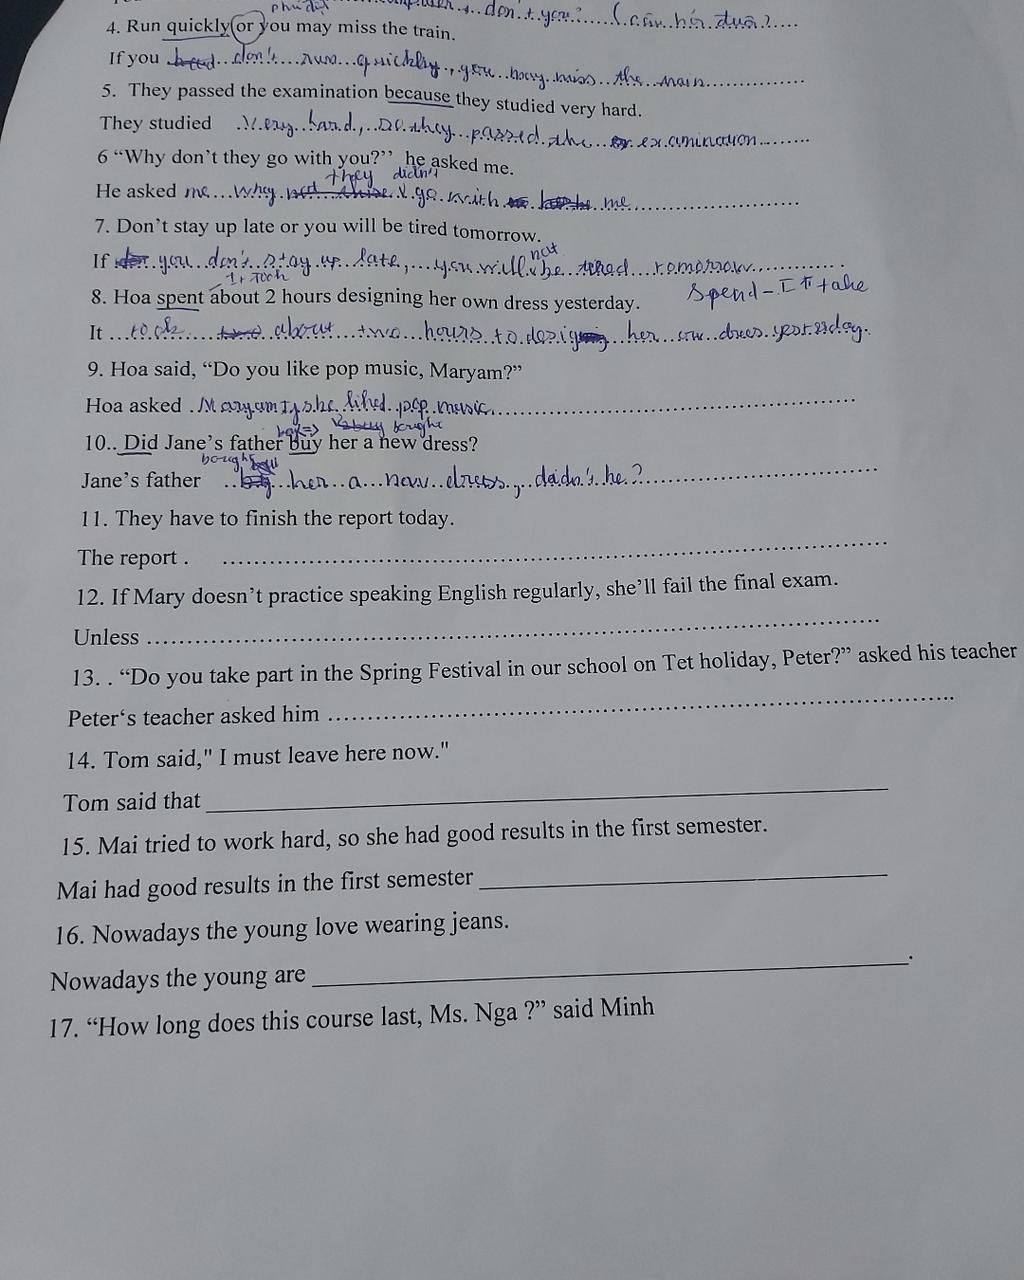 don't you?.....(câu hỏi đuôi?....
4. Run quickly or you may miss the train.
If you don't...run...quickly.,you..may..miss..the..train................
5. They passed the examination because they studied very hard.
They studied .very..hard,..so.they...passed.the...examination.........
6 “Why don’t they go with you?” he asked me.
they didn't
He asked me...why..go.with me..........................
7. Don’t stay up late or you will be tired tomorrow.
not
If you..don't..stay.up..late,...you.will.be..tired...tomorrow............
8. Hoa spent about 2 hours designing her own dress yesterday. Spend - It take
It ...took......about...two...hours..to.design...her...own..dress.yesterday.
9. Hoa said, “Do you like pop music, Maryam?”
Hoa asked .Maryam.if.she..liked..pop..music...............................................
bought
10.. Did Jane’s father buy her a new dress?
bought
Jane’s father ..her...a...new..dress.,..didn't.he.?..............................
11. They have to finish the report today.
The report . ...................................................................................
12. If Mary doesn’t practice speaking English regularly, she’ll fail the final exam.
Unless ...........................................................................................
13. . “Do you take part in the Spring Festival in our school on Tet holiday, Peter?” asked his teacher
Peter‘s teacher asked him ..............................................................................
14. Tom said," I must leave here now."
Tom said that ____________________
15. Mai tried to work hard, so she had good results in the first semester.
Mai had good results in the first semester ____________________
16. Nowadays the young love wearing jeans.
Nowadays the young are ____________________.
17. “How long does this course last, Ms. Nga ?” said Minh